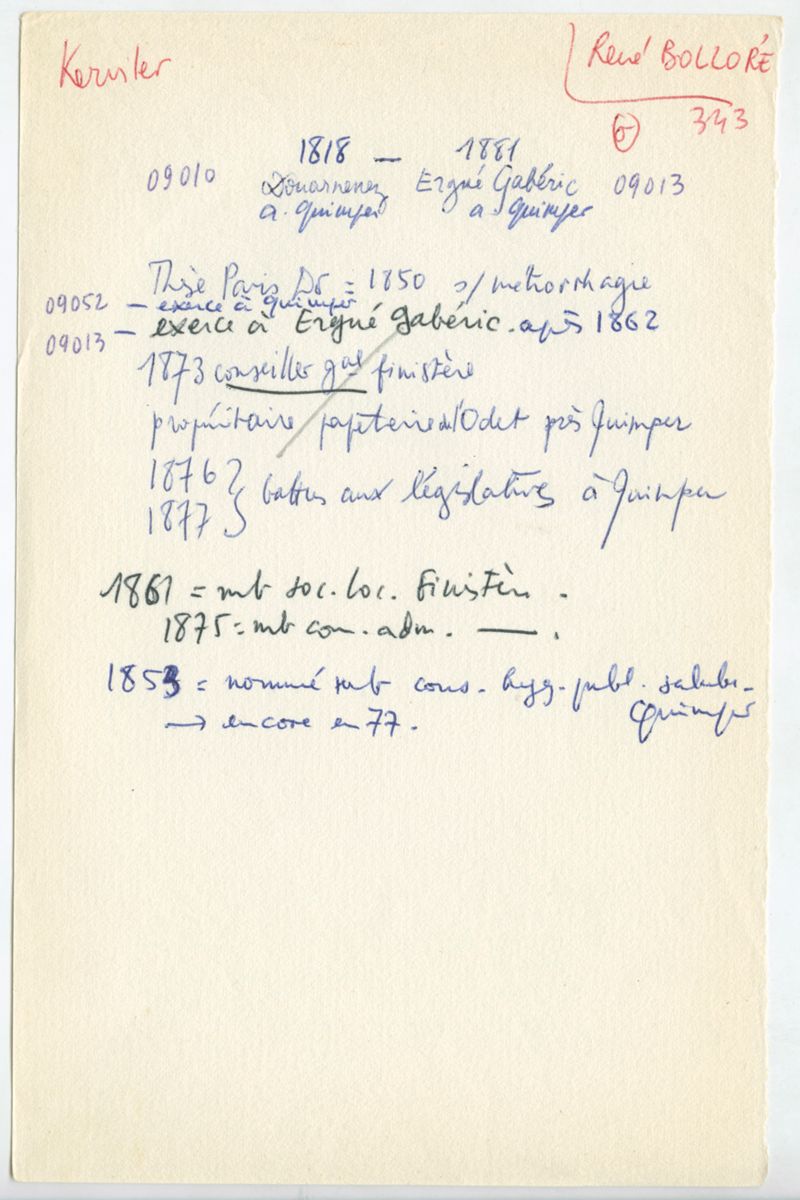 Kerviler
René BOLLORÉ
6 343
1818 — 1881
09010 Douarnenez Ergué Gabéric 09013
a. Quimper a. Quimper
Thèse Paris Dr = 1850 s/ metrorrhagie
09052 — exerce à Quimper
09013 — exerce à Ergué Gabéric. après 1862
1873 conseiller gal finistère
propriétaire papeterie de l'Odet près Quimper
1876 }
1877 } battus aux législatives à Quimper
1861 = mb soc. loc. Finistère.
1875 = mb com. adm. — .
1853 = nommé mb cons. hyg. publ. salubr.
Quimper
→ encore en 77.